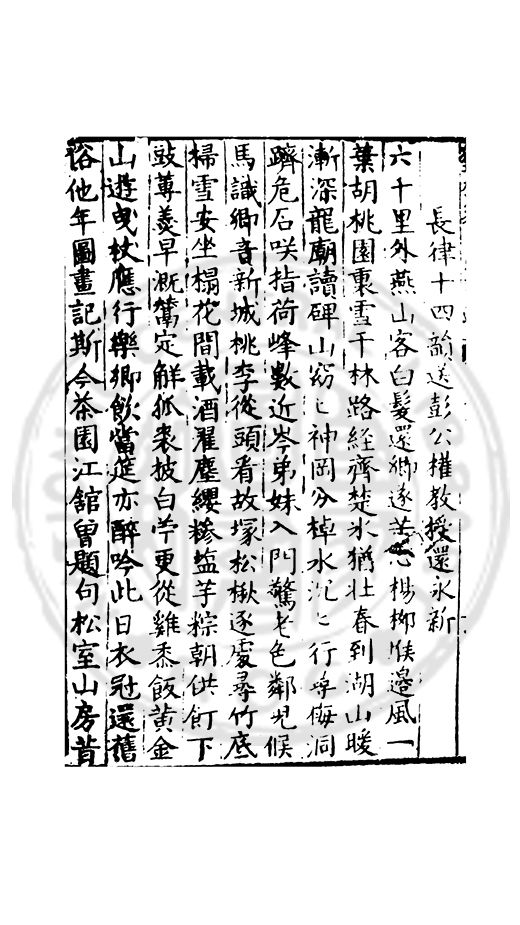 長律十四韻送彭公權教授還永新
六十里外燕山客白髮還鄉遂苦心楊柳堠邊風一
葉胡桃園裏雪千林路經齊楚氷猶壮春到湖山暖
漸深龍廟讀碑山窈〻神岡分棹水沉〻行尋侮洞
躋危石咲指荷峰數近岑弟妹入門驚老色鄰児候
馬識鄉音新城桃李從頭看故塚松楸逐處尋竹底
掃雪安坐榻花間載酒濯塵纓糝塩芋粽朝供飣下
豉蓴羮早溉鬵定觧狐裘披白苧更從雞黍飯黃金
山遊曳杖應行樂鄉飲當筵亦醉吟此日衣冠還舊
俗他年圖畫記斯今茶園江館曽題句松室山房昔